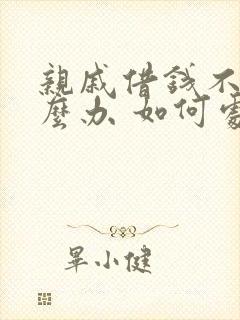 親戚借錢不
麼办 如何處
畢小健